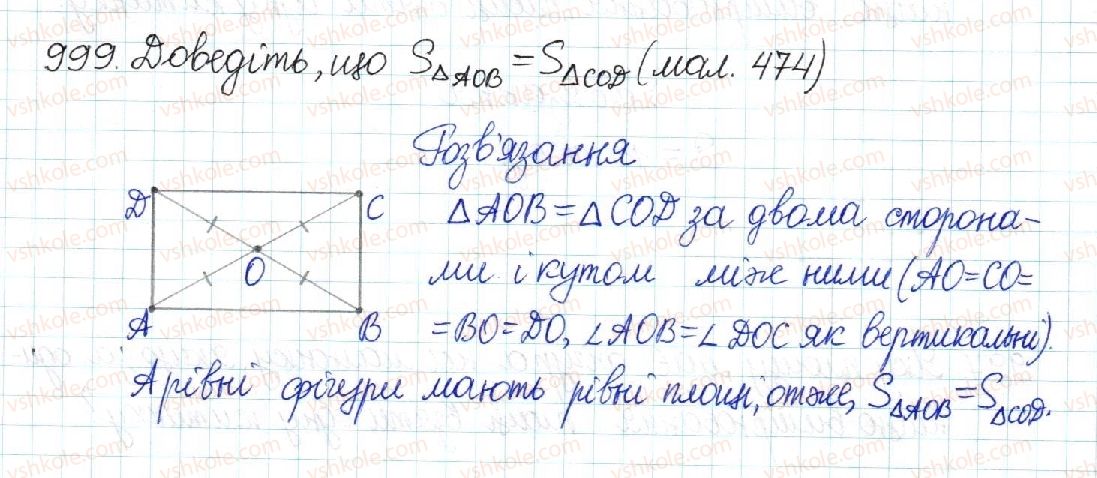 999. Доведіть, що S△AOB = S△COD (мал. 474)
Розв'язання
D
C
O
A
B
△AOB = △COD за двома сторона-
ми і кутом між ними (AO=CO=
=BO=DO, ∠AOB=∠DOC як вертикальні).
А рівні фігури мають рівні площі, отже, S△AOB = S△COD.
vshkole.com